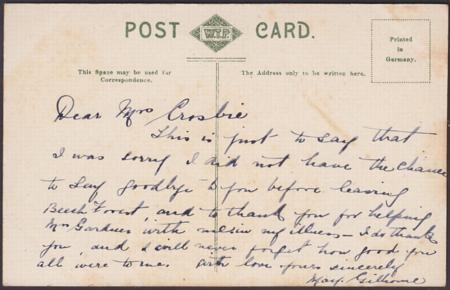 POST W.T.P. CARD.
Printed
in
Germany.
This Space may be used for
Correspondence.
The Address only to be written here.
Dear Mrs Crosbie
This is just to say that
I was sorry I did not have the chance
to say goodbye to you before leaving
Beech Forest, and to thank you for helping
Mrs Gardner with me in my illness - I do thank
you, and I will never forget how good you
all were to me. With love yours sincerely
May.